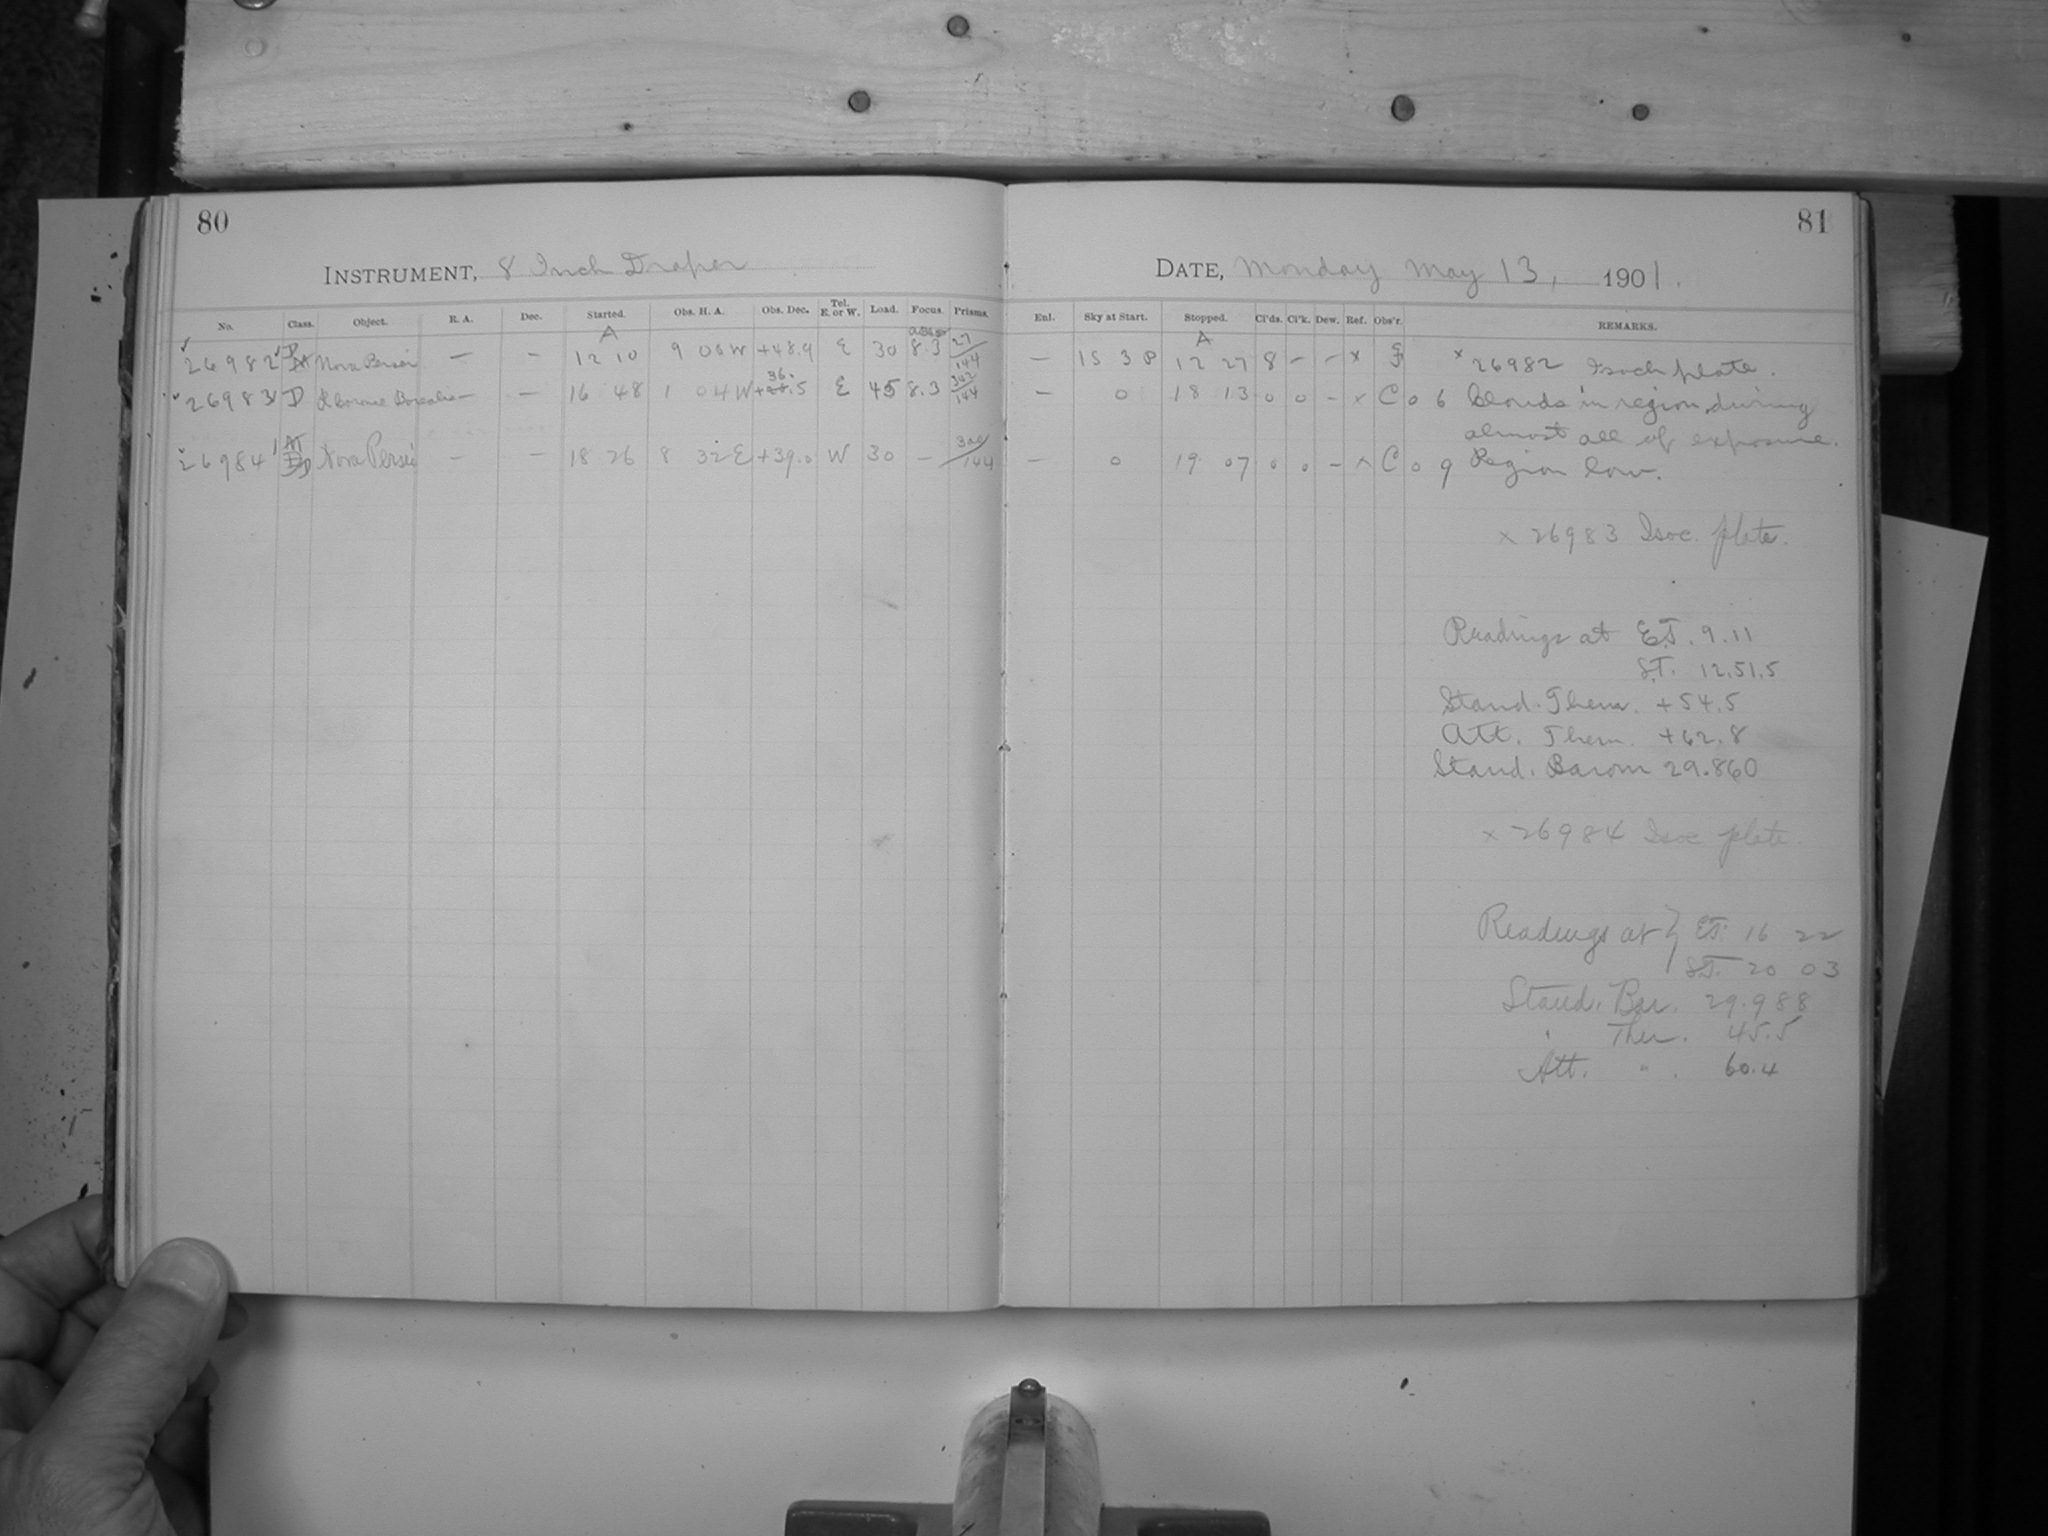 80
81
INSTRUMENT, 8 Inch Draper
DATE, Monday May 13, 1901.
No. Class. Object. R. A. Dec. Started. Obs. H. A. Obs. Dec. Tel. E. or W. Load. Focus. Prisms. Enl. Sky at Start. Stopped. Cl'ds. Cl'k. Dew. Ref. Obs'r. REMARKS.
A A
26982 Nova Persei — — 12 10 9 06 W +48.9 E 30 8.3 27/144 — 15 3 P 12 27 8 – – x x 26982 Isoch plate.
26983 D R Coronae Borealis — — 16 48 1 04 W 36.5 E 45 8.3 302/144 — 0 18 13 0 0 – x C 0 6 Clouds in region during
almost all of exposure.
26984 D Nova Persei — — 18 26 8 32 E +39.0 W 30 — 144 — 0 19 07 0 0 – x C 0 9 Region low.
x 26983 Isoc. plate.
Readings at E.T. 9.11
S.T. 12.51.5
Stand. Therm. +54.5
Att. Therm. +62.8
Stand. Barom 29.860
x 26984 Isoc plate.
Readings at } E.T. 16 22
S.T. 20 03
Stand. Bar. 29.988
" Ther. 45.5
Att. " . 60.4